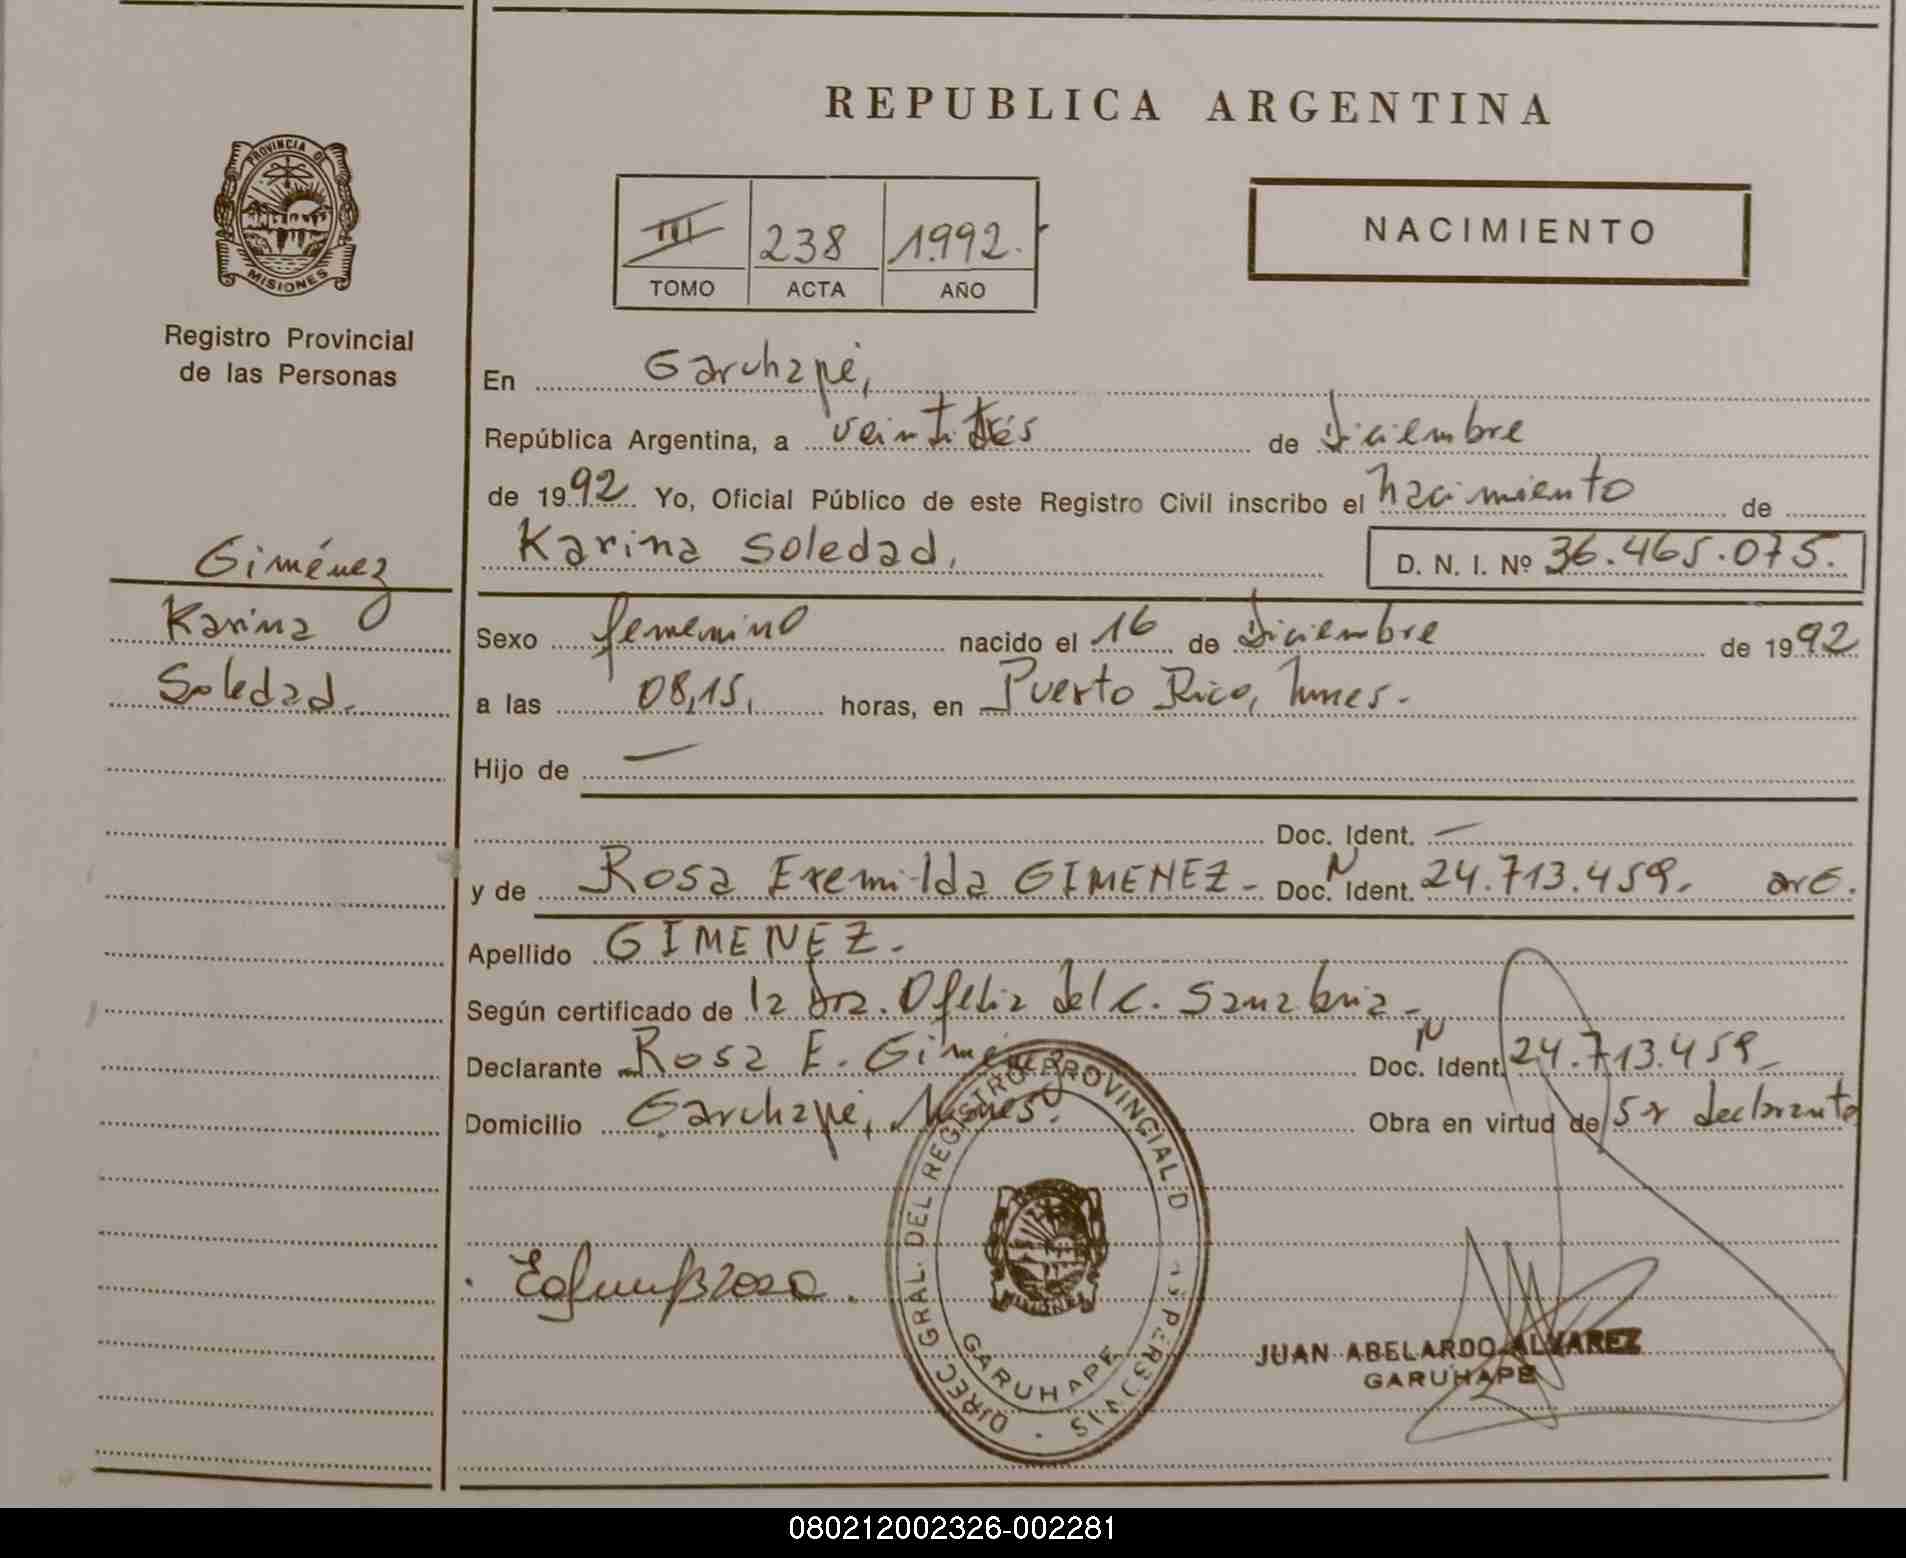 REPUBLICA ARGENTINA
PROVINCIA DE
MISIONES
Registro Provincial
de las Personas
III 238 1.992.
TOMO ACTA AÑO
NACIMIENTO
En Garuhapé,
República Argentina, a veintitrés de Diciembre
de 1992. Yo, Oficial Público de este Registro Civil inscribo el nacimiento de
Karina Soledad, D. N. I. Nº 36.465.075.
Giménez
Karina
Soledad.
Sexo femenino nacido el 16 de Diciembre de 1992
a las 08,15, horas, en Puerto Rico, Mnes.-
Hijo de —
Doc. Ident. —
y de Rosa Eremilda GIMENEZ- Doc. N Ident. 24.713.459. arg.
Apellido GIMENEZ.-
Según certificado de la Dra. Ofelia del C. Sanabria-
Declarante Rosa E. Giménez Doc. N Ident. 24.713.459.-
Domicilio Garuhapé, Mnes. Obra en virtud de ser declarante
DIREC. GRAL. DEL REGISTRO PROVINCIAL D PERSONAS
MISIONES
GARUHAPE
JUAN ABELARDO ALVAREZ
GARUHAPE
080212002326-002281